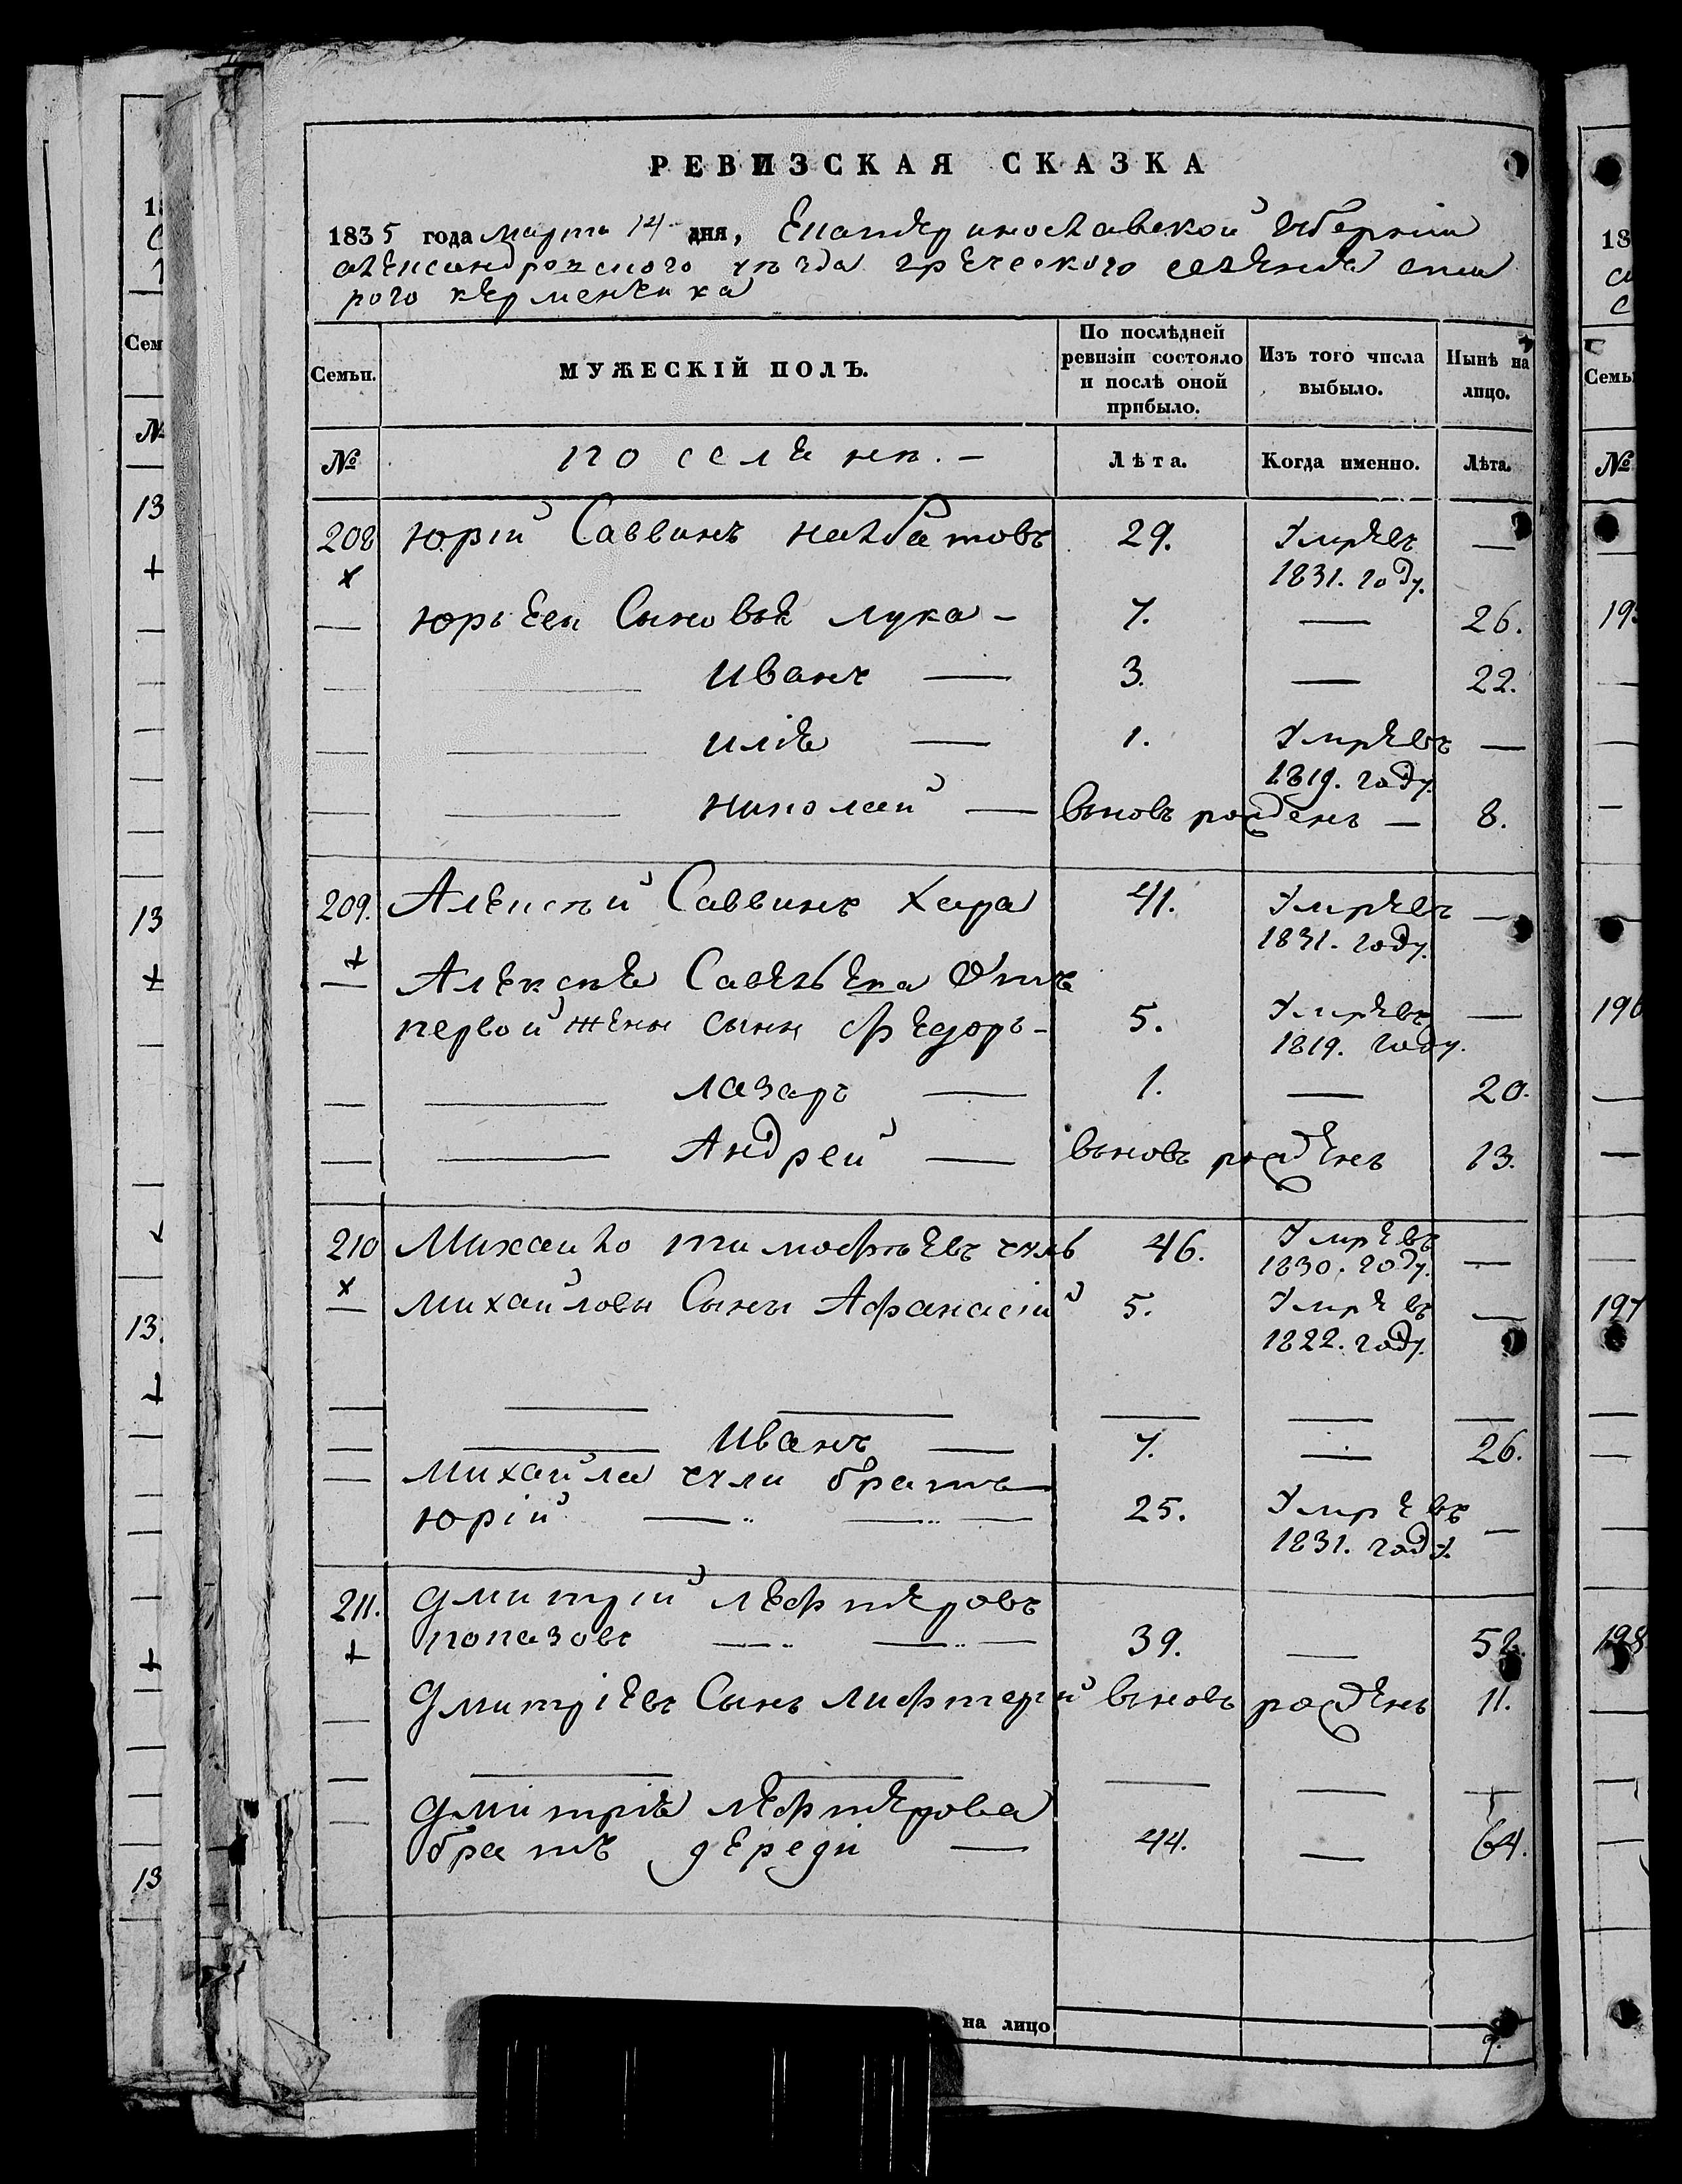 РЕВИЗСКАЯ СКАЗКА
1835 года марта 14 дня, Екатеринославской Губерніи
александровского уѣзда греческого селенія ста
рого керменчика
Семьи. МУЖЕСКІЙ ПОЛЪ. По послѣдней ревизіи состояло и послѣ оной прибыло. Изъ того числа выбыло. Нынѣ на лицо.
№ поселянѣ. – Лѣта. Когда именно. Лѣта.
208 Юрій Саввинъ налбатовъ 29. Умре въ —
1831. году.
— Юрьеви Сыновье лука – 7. — 26.
— — иванъ — 3. — 22.
— — илія — 1. Умре въ —
1819. году.
— — николай — вновь рожденъ — 8.
209. Алексѣй Саввинъ хара 41. Умре въ —
1831. году.
— Алексѣя Савельева Отъ
первой жены сыны федоръ – 5. Умре въ —
1819. году.
— — лазаръ — 1. — 20.
— — Андрей — вновь рожденъ 13.
210 Михайло тимофѣевъ чуль 46. Умре въ —
1830. году.
— михайловы Сыны Афанасій 5. Умре въ —
1822. году.
— — иванъ — 7. — 26.
— михайла чули братъ
юрій — 25. Умре въ —
1831. году.
211. дмитрій лефтеровъ
попазовъ — 39. — 58.
— дмитріевъ Сынъ лифтерій вновь рожденъ 11.
— дмитрія лефтерова
братъ дереди — 44. — 64.
на лицо 7.